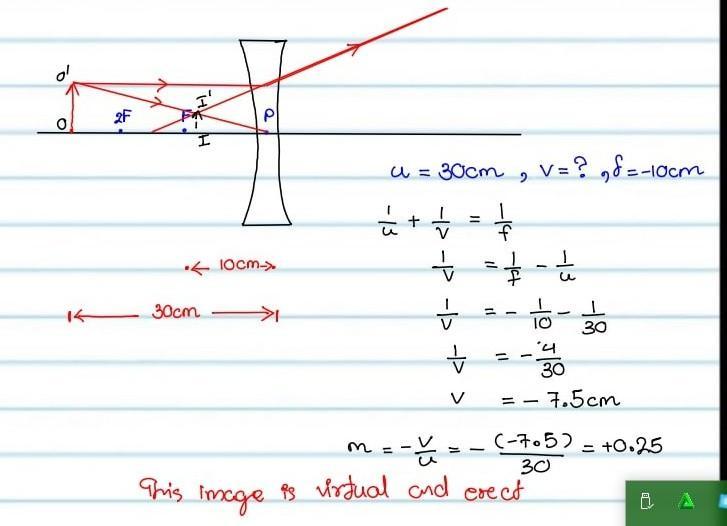 O'
O 2F F I' P
I
u = 30cm , v = ? , f = -10cm
1/u + 1/v = 1/f
1/v = 1/f - 1/u
← 10cm →
1/v = - 1/10 - 1/30
← 30cm →
1/v = - 4/30
v = - 7.5cm
m = - v/u = - (-7.5)/30 = +0.25
This image is virtual and erect